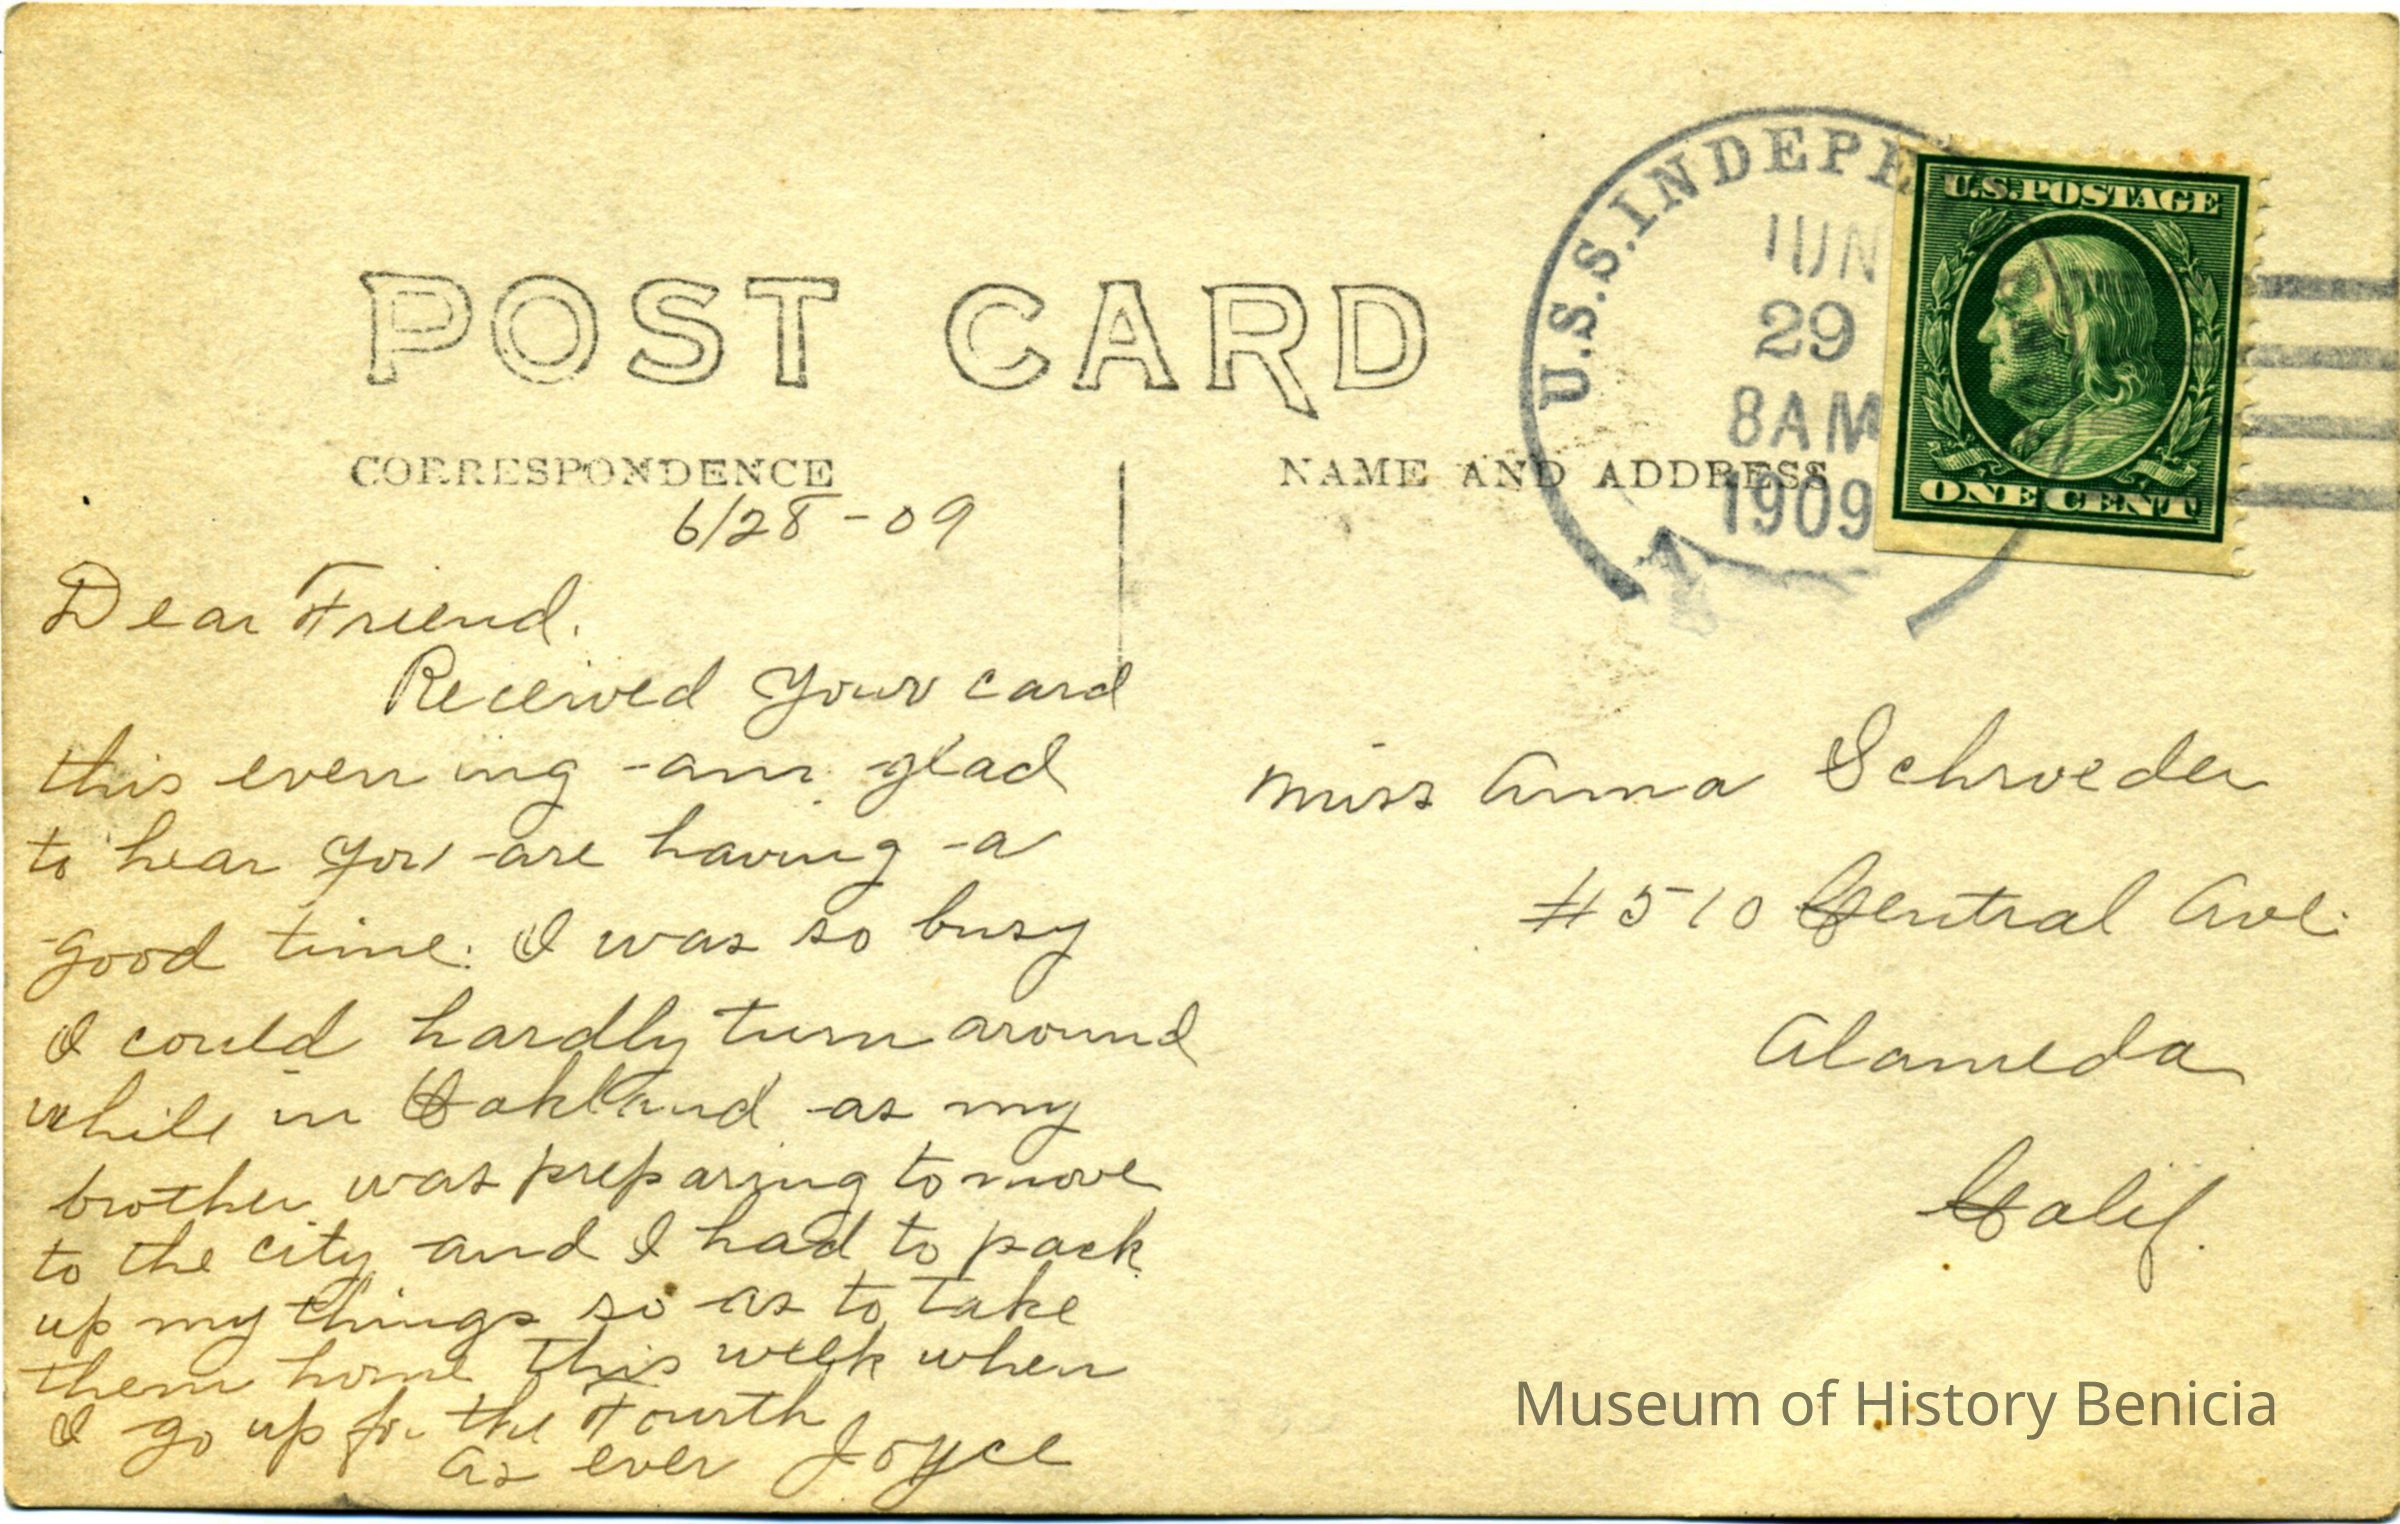 POST CARD
CORRESPONDENCE
NAME AND ADDRESS
U.S.S. INDEPE
JUN
29
8AM
1909
U.S. POSTAGE
ONE CENT
6/28-09
Dear Friend.
Received your card
this evening - am glad
to hear you are having a
good time. I was so busy
I could hardly turn around
while in Oakland as my
brother was preparing to move
to the city and I had to pack
up my things so as to take
them home this week when
I go up for the Fourth
As ever Joyce
Miss Anna Schroeder
#510 Central Ave.
Alameda
Calif.
Museum of History Benicia